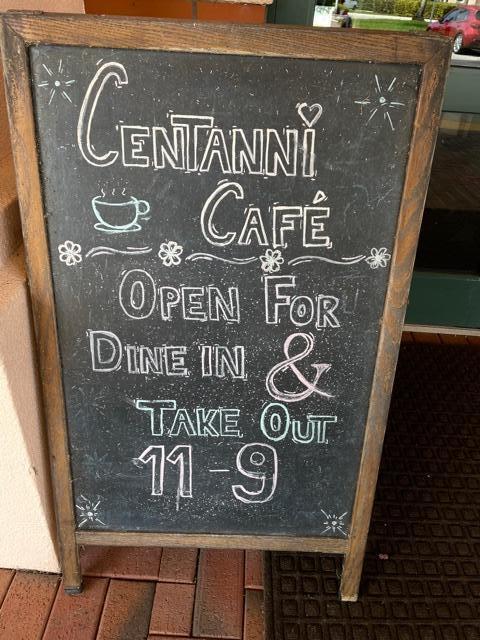 CENTANNI
CAFÉ
OPEN FOR
DINE IN &
TAKE OUT
11-9